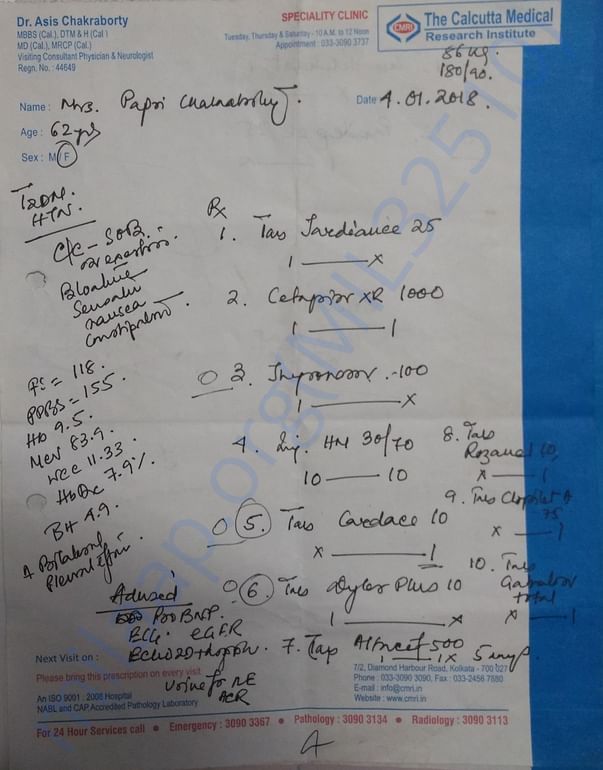 Dr. Asis Chakraborty
MBBS (Cal.), DTM & H (Cal)
MD (Cal.), MRCP (Cal.)
Visiting Consultant Physician & Neurologist
Regn. No.: 44649
SPECIALITY CLINIC
Tuesday, Thursday & Saturday - 10 A.M. to 12 Noon
Appointment : 033-3090 3737
CMRI
The Calcutta Medical
Research Institute
86 kg
180/90.
Name : Mrs. Papri Chakraborty.
Date 4.01.2018.
Age : 62 yrs
Sex : M/F
T2DM.
HTN.
C/C - SOB
on exertion.
nausea
Rx
1. Tab Jardiance 25
1 — x
2. Cetapin XR 1000
1 — 1
3. Thyronorm - 100
1 — x
4. Inj. HM 30/70
10 — 10
5. Tab Cardace 10
x — 1
6. Tab Dytor Plus 10
1 — x
7. Tab 500
1 — 1 x 5
8. Tab
Rozavel 10
x — 1
9. Tab Clopilet A
75
x — 1
10. Tab
total
x — 1
FS = 118.
PPBS = 155.
Hb 9.5.
MCV 83.9.
WCC 11.33.
HbA1c 7.9%.
4.9.
Pleural
Advised
Pro BNP.
ECG. eGFR
Echo 2D + doppler.
Urine for RE
ACR
Next Visit on :
Please bring this prescription on every visit
An ISO 9001 : 2008 Hospital
NABL and CAP Accredited Pathology Laboratory
7/2, Diamond Harbour Road, Kolkata - 700 027
Phone : 033-3090 3090, Fax : 033-2456 7880
E-mail : info@cmri.in
Website : www.cmri.in
For 24 Hour Services call • Emergency : 3090 3367 • Pathology : 3090 3134 • Radiology : 3090 3113